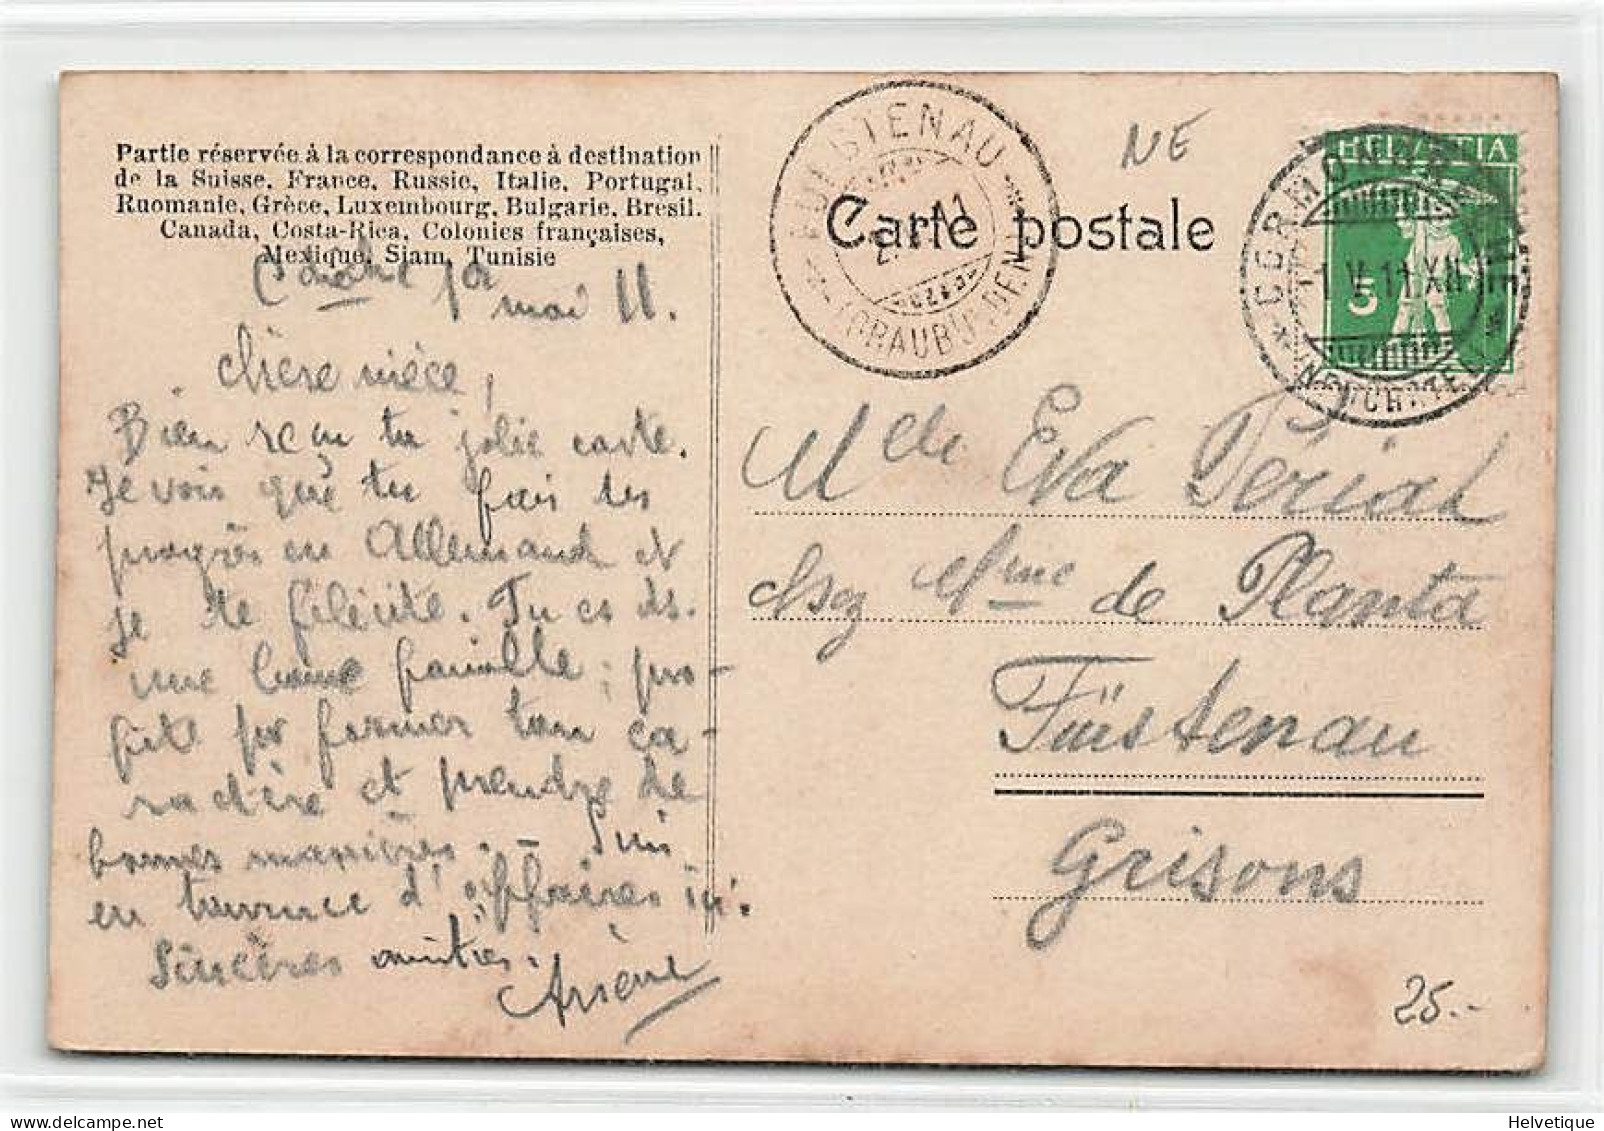 Partie réservée à la correspondance à destination
de la Suisse, France, Russie, Italie, Portugal,
Ruomanie, Grèce, Luxembourg, Bulgarie, Bresil.
Canada, Costa-Rica, Colonies françaises,
Mexique, Siam, Tunisie
1er mai 11.
Chère nièce,
Bien reçu ta jolie carte.
Je vois que tu fais des
progrès en Allemand et
je te félicite. Tu es ds.
une bonne famille; pro-
fite pr former ton ca-
ractère et prendre de
bonnes manières. – Suis
en d'affaires ici.
Sincères amitiés.
Arsène
NE
Carte postale
FÜRSTENAU
(GRAUBÜNDEN)
HELVETIA
5
CORMONDRÈCHE
1.V.11.XII
(NEUCHÂTEL)
Mlle Eva
chez Mme de Planta
Fürstenau
Grisons
25.-
Helvetique